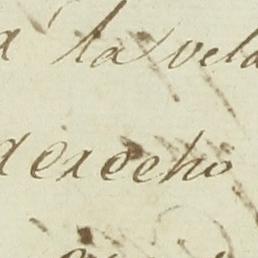 a la vela
derecho